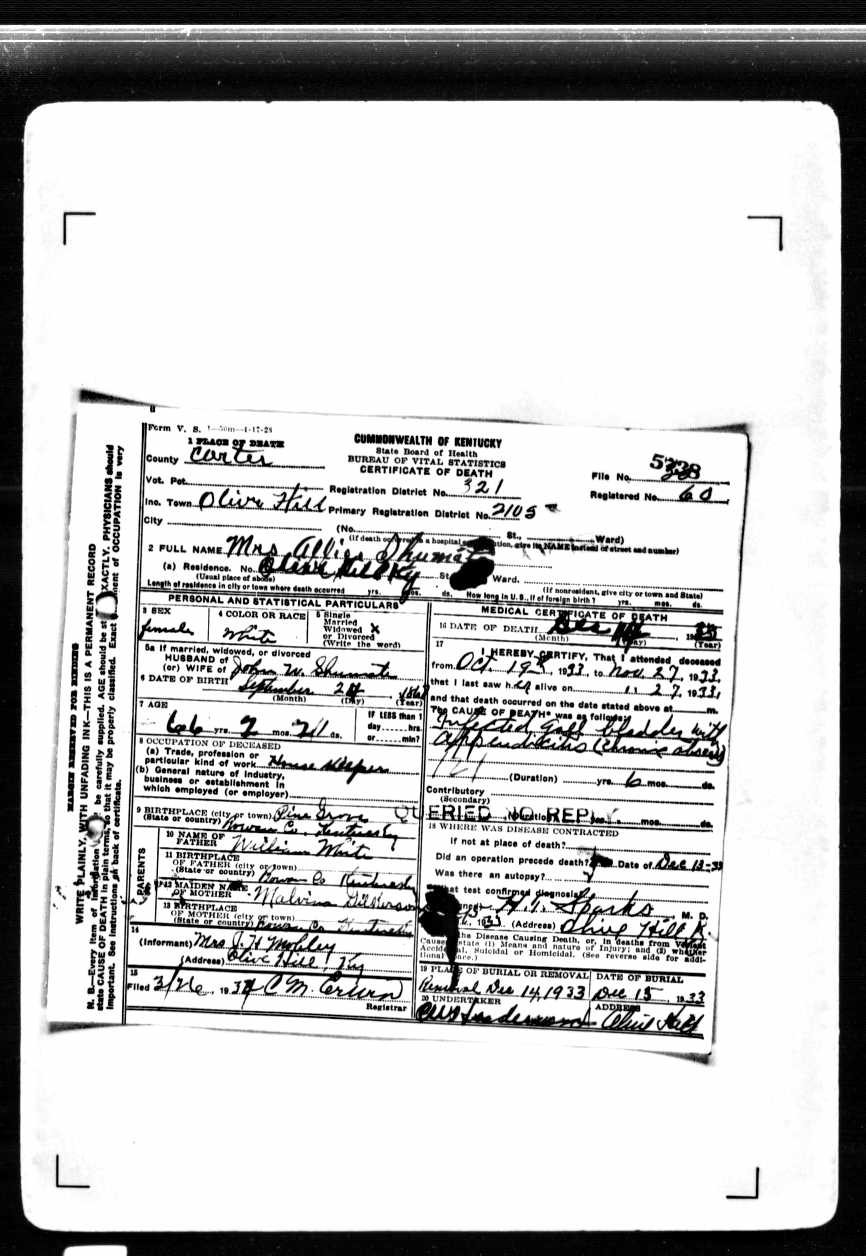 Form V. S. 1—50m—1-17-28
1 PLACE OF DEATH
County Carter
Vot. Pct.
Inc. Town Olive Hill
City
COMMONWEALTH OF KENTUCKY
State Board of Health
BUREAU OF VITAL STATISTICS
CERTIFICATE OF DEATH
Registration District No. 321
Primary Registration District No. 2105
File No.
Registered No. 60
(No. St., Ward)
(If death occurred in a hospital or institution, give its NAME instead of street and number)
2 FULL NAME Mrs Allie Shumate
(a) Residence. No. Olive Hill Ky St. Ward.
(Usual place of abode) (If nonresident, give city or town and State)
Length of residence in city or town where death occurred yrs. mos. ds. How long in U. S., if of foreign birth? yrs. mos. ds.
PERSONAL AND STATISTICAL PARTICULARS
3 SEX
female
4 COLOR OR RACE
White
5 Single
Married
Widowed X
or Divorced
(Write the word)
5a If married, widowed or divorced
HUSBAND of
(or) WIFE of John W. Shumate
6 DATE OF BIRTH September 24
(Month) (Day) (Year)
7 AGE
66 yrs. 2 mos. ds.
IF LESS than 1
day hrs.
or min?
8 OCCUPATION OF DECEASED
(a) Trade, profession or
particular kind of work House Keeper
(b) General nature of industry,
business or establishment in
which employed (or employer)
9 BIRTHPLACE (city or town) Pine Grove
(State or country) Rowan Co, Kentucky
PARENTS
10 NAME OF
FATHER William White
11 BIRTHPLACE
OF FATHER (city or town)
(State or country) Rowan Co Kentucky
12 MAIDEN NAME
OF MOTHER Malvina
13 BIRTHPLACE
OF MOTHER (city or town)
(State or country) Rowan Co Kentucky
14
(Informant) Mrs J. H Mobley
(Address) Olive Hill, Ky
15
Filed 3/26, 193
Registrar
MEDICAL CERTIFICATE OF DEATH
16 DATE OF DEATH Dec
(Month) (Day) (Year)
17
I HEREBY CERTIFY, That I attended deceased
from Oct. 19, 1933, to Nov. 27, 1933,
that I last saw her alive on 11 27, 1933,
and that death occurred on the date stated above at m.
The CAUSE OF DEATH* was as follows:
Infected Gall bladder with
appendicitis (chronic
(Duration) yrs. 6 mos. ds.
Contributory
(Secondary)
QUERIED NO REPLY
(Duration) yrs. mos. ds.
18 WHERE WAS DISEASE CONTRACTED
If not at place of death?
Did an operation precede death? Date of Dec 13-33
Was there an autopsy?
What test confirmed diagnosis?
H. T. Sparks M. D.
(Address) Olive Hill K.
the Disease Causing Death, or, in deaths from Violent
Causes, state (1) Means and nature of Injury; and (2) whether
Accidental, Suicidal or Homicidal. (See reverse side for addi-
tional space.)
19 PLACE OF BURIAL OR REMOVAL
Removal Dec 14, 1933
DATE OF BURIAL
Dec 15, 1933
20 UNDERTAKER
ADDRESS
Olive Hill
MARGIN RESERVED FOR BINDING
WRITE PLAINLY, WITH UNFADING INK—THIS IS A PERMANENT RECORD
N. B.—Every item of information should be carefully supplied. AGE should be stated EXACTLY. PHYSICIANS should
state CAUSE OF DEATH in plain terms, so that it may be properly classified. Exact statement of OCCUPATION is very
important. See instructions on back of certificate.